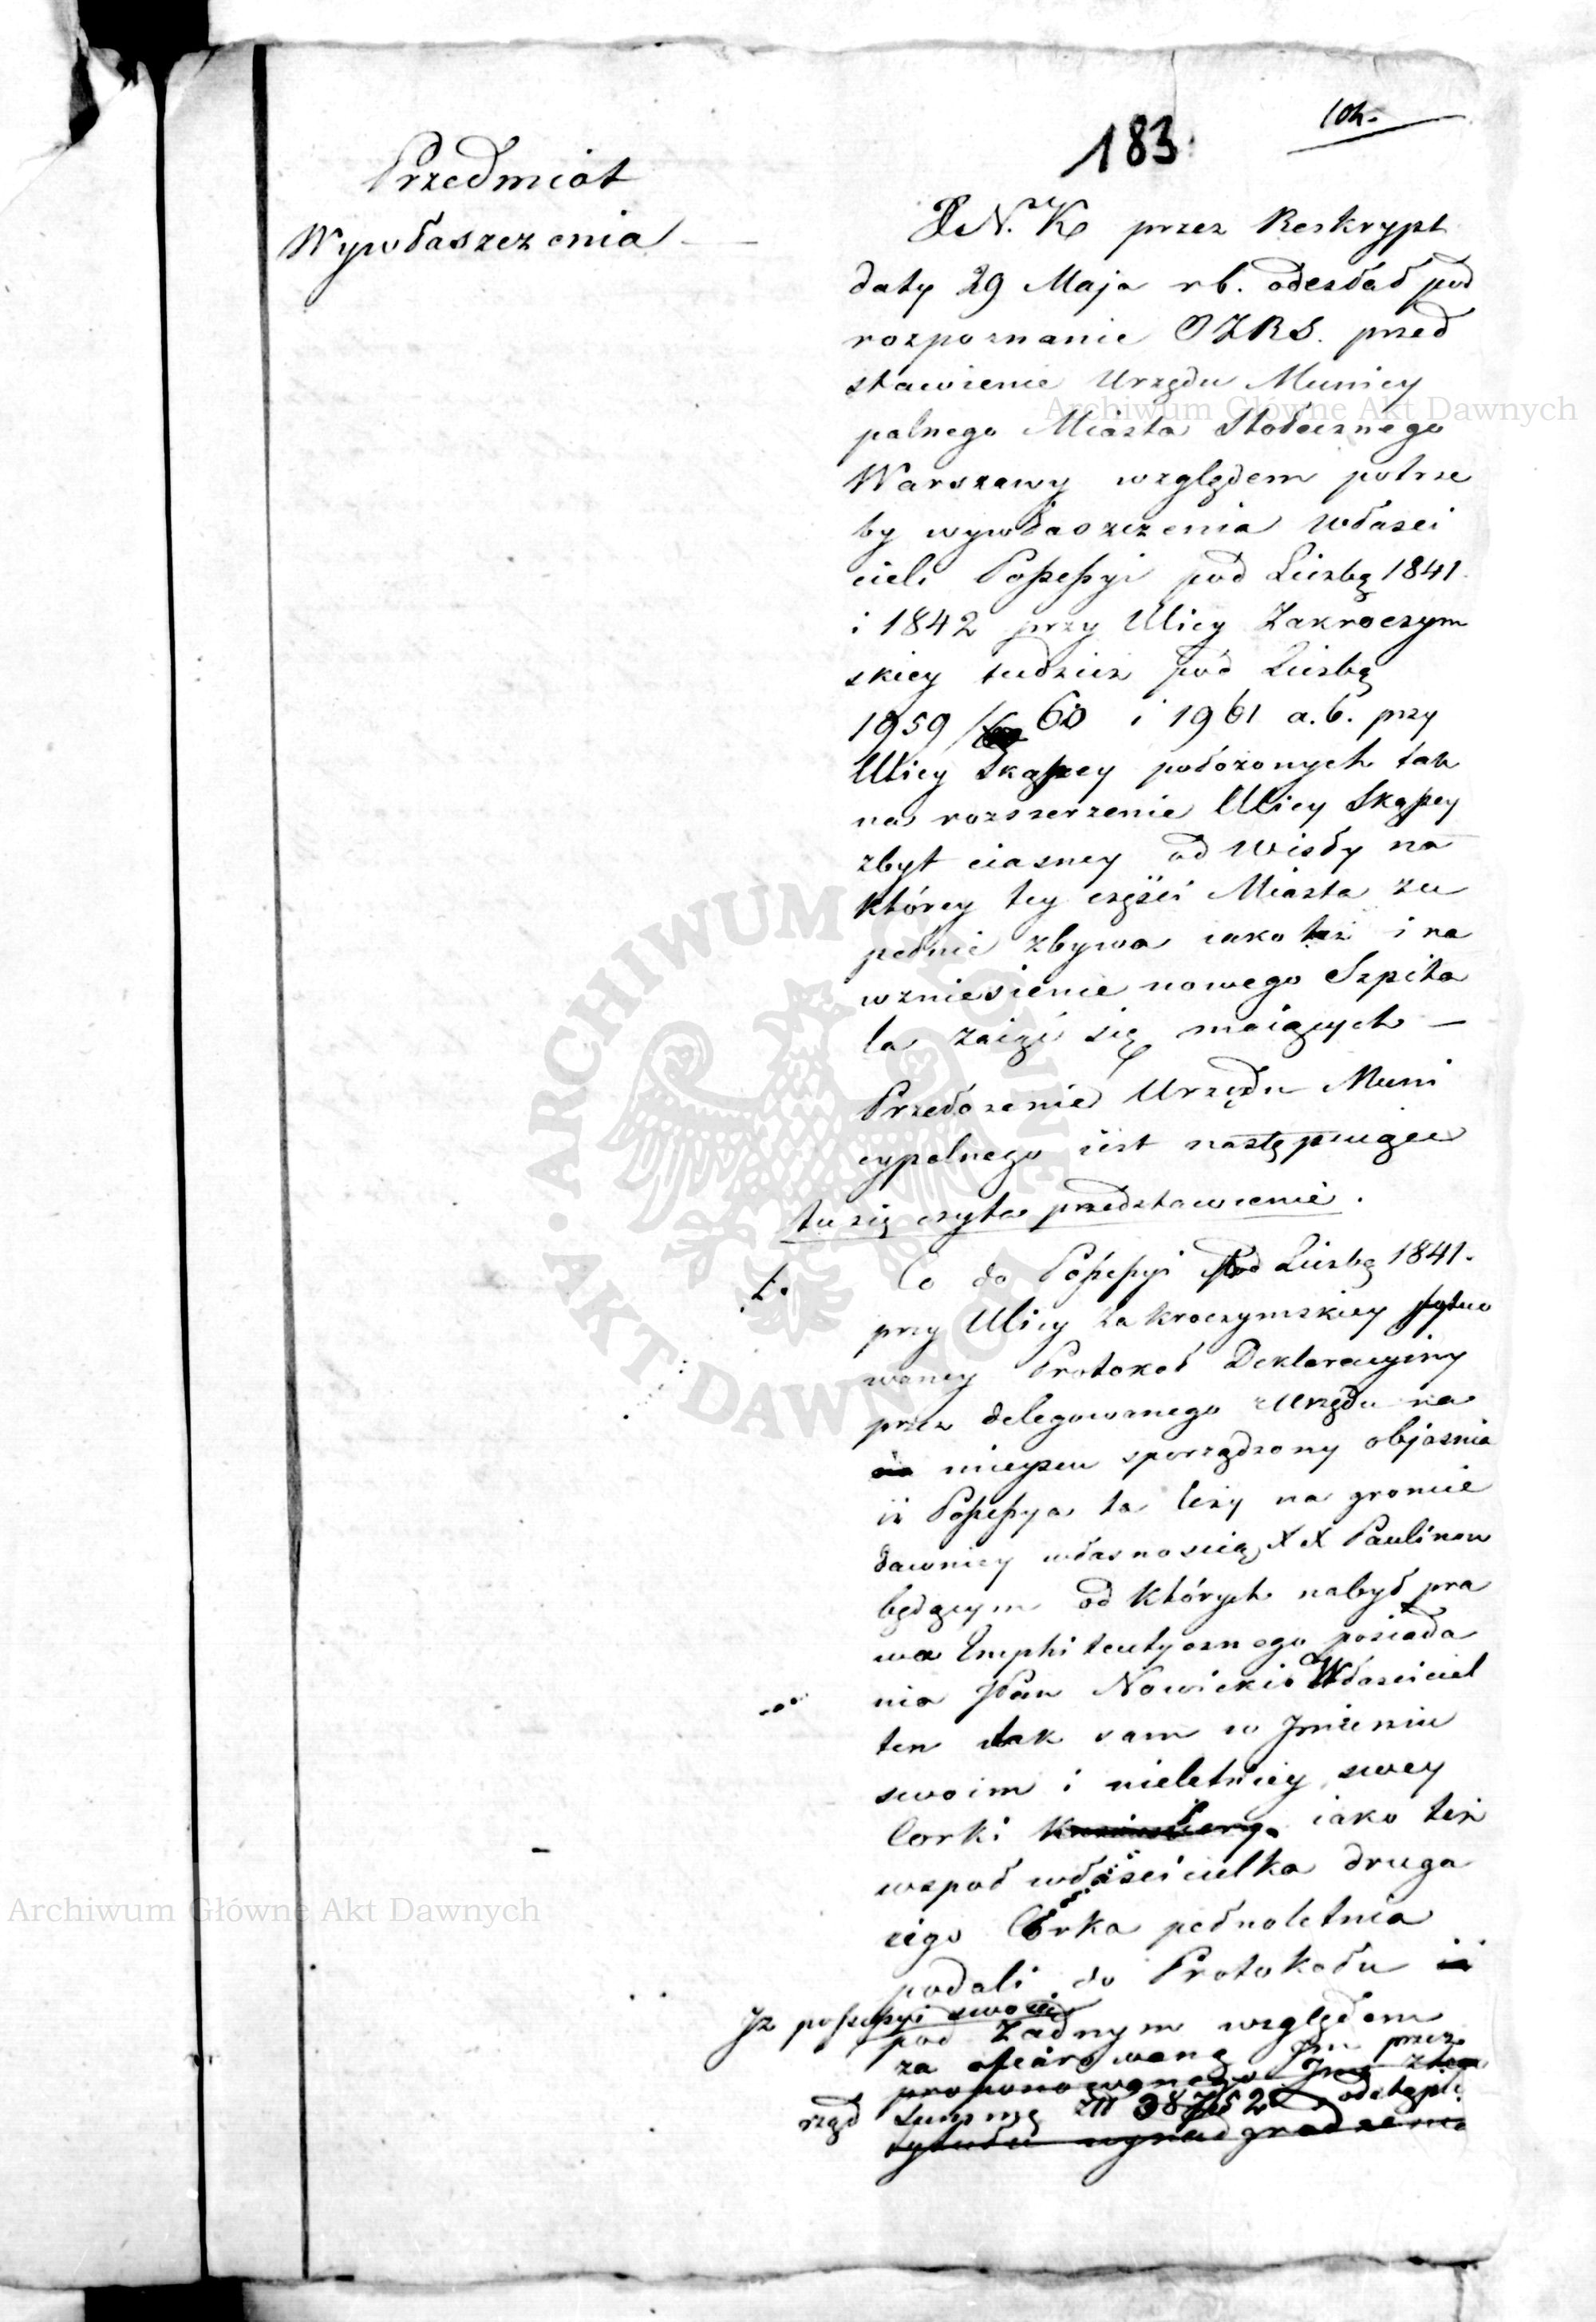 183.
102.
Przedmiot
Wywłaszczenia —
JN.K przez Reskrypt
daty 29 Maja rb. odesłał pod
rozpoznanie OZRS. przed
stawienie Urzędu Municy
palnego Miasta Stołecznego
Warszawy względem potrze
by wywłaszczenia właści
cieli Possessyi pod Liczbą 1841.
i 1842 przy Ulicy Zakroczym
skiey tudzież pod Liczbą
1959/60 i 1961 a.b. przy
Ulicy Skąpey położonych tak
na rozszerzenie Ulicy Skąpey
zbyt ciasney od Wisły na
którey tey części Miasta zu
pełnie zbywa iako też i na
wzniesienie nowego Szpita
la zaiąć się maiących —
Przełożenie Urzędu Muni
cypalnego iest następuiące
tu się czyta przedstawienie.
1. Co do Possessyi pod Liczbą 1841.
przy Ulicy Zakroczymskiey sytuo
waney Protokół Deklaracyiny
przez delegowanego z Urzędu na
mieyscu sporządzony objaśnia
iż Possessya ta leży na groncie
dawniey własnością XX Paulinow
będącym od których nabył pra
wa Emphiteutycznego posiada
nia Pan Nowicki a Właściciel
ten tak sam w Jmieniu
swoim i nieletniey swey
Corki iako też
wspoł właścicielka druga
iego Córka pełnoletnia
podali do Protokołu
Jż possessyi swoiey
pod żadnym względem
za ofiarowaną Jm przez
rząd Summę złł 38752 odstąpić
tytułu wynadgrodzenia
Archiwum Główne Akt Dawnych
Archiwum Główne Akt Dawnych
ARCHIWUM GŁÓWNE AKT DAWNYCH